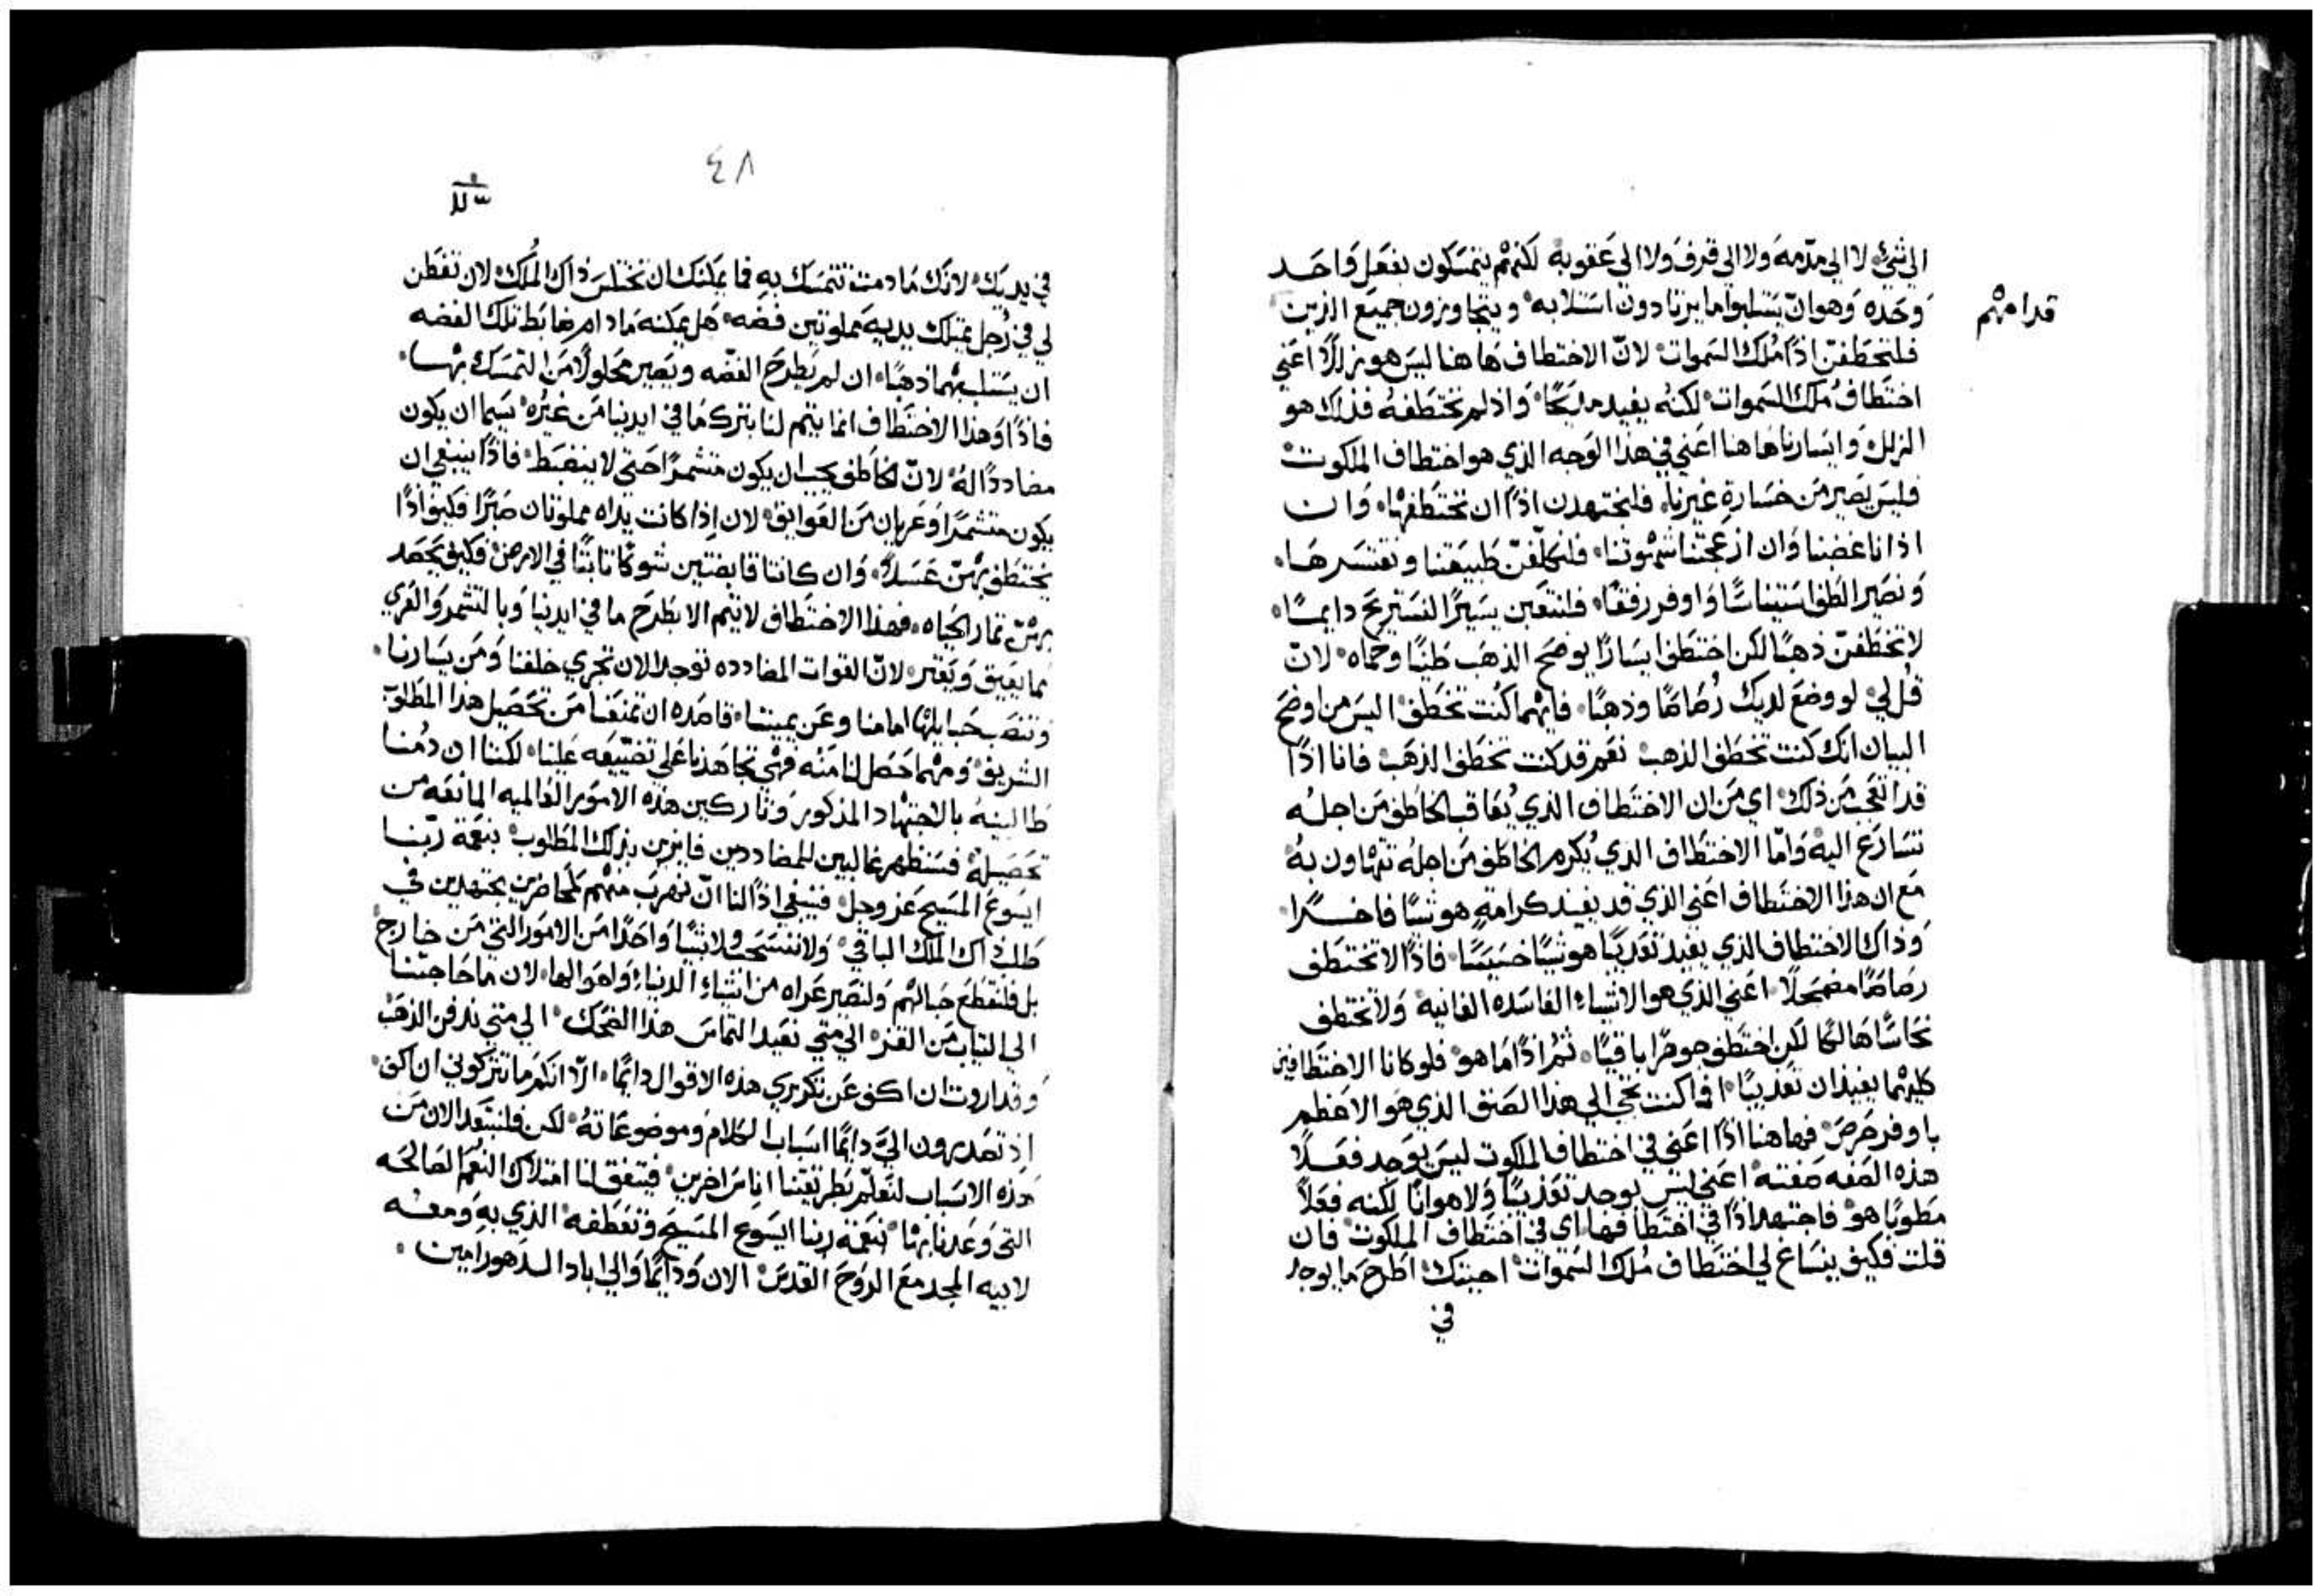 الي شيء لا الي مذمه ولا الي قرف ولا الي عقوبه لكنهم يتمسكون بفعل واحد
وحده وهو ان يستلبوا ما يرتادون استلابه ويتجاوزون جميع الذين
قدامهم
فلنختطفن اذًا مُلك السموات لانّ الاختطاف هاهنا ليس هو زللًا اعني
اختطاف مُلك السموات لكنه يفيد مديحًا واذ لم نختطفه فذلك هو
الزلل وايسارنا هاهنا اعني في هذا الوجه الذي هو اختطاف الملكوت
فليس يصير من خسارة غيرنا فلنجتهدن اذًا ان نختطفها وان
اذانا غضبنا وان ازعجتنا شهوتنا فلنكلّفنّ طبيعتنا ونقتسرها
ونصير الطف استيناسًا واوفر رفقًا فلنتعبن يسيرًا لنستريح دايمًا
لا تخطفنّ ذهبًا لكن اختطف ايسارًا يوضح الذهب طينًا وحماه لانّ
قُل لي لو وضع لديك رُصاصًا وذهبًا فايهما كنت تخطف اليس من اوضح
البيان انك كنت تخطف الذهب نعم قد كنت تخطف الذهب فانا اذًا
قد اتعجب من ذلك اي من ان الاختطاف الذي يُعاقب الخاطف من اجله
تسارع اليه وامّا الاختطاف الذي يُكرم الخاطف من اجله تتهاون به
مع ان هذا الاختطاف اعني الذي قد يفيد كرامةٍ هو شيًا فاخرًا
وذاك الاختطاف الذي يفيد تعذيبًا هو شيًا خسيسًا فاذًا لا تختطف
رصاصًا مضمحلًا اعني الذي هو الاشياء الفاسده الفانيه ولا تختطف
نحاسًا هالكًا لكن اختطف جوهرًا باقيًا ثم اذًا ما هو فلو كانا الاختطافين
كليهما يفيدان تعذيبًا افما كنت تجي الي هذا الصنف الذي هو الاعظم
باوفر حرص فهاهنا اذًا اعني في اختطاف الملكوت ليس يوجد فعلًا
هذه الصفه صفته اعني ليس يوجد تعذيبًا ولا هوانًا لكنه فعلًا
مطوبًا هو فاجتهد اذًا في اختطافها اي في اختطاف الملكوت فان
قلت فكيف ينساغ لي اختطاف مُلك السموات اجبتك اطرح ما يوجد
في
٤٨
في يديك لانّك ما دمت تتمسك به فما يمكنك ان تختلس ذاك المُلك لان تفطن
لي في رُجل يمتلك يديه مملوتين فضه هل يمكنه ما دام ضابط تلك الفضه
ان يستلب بهما ذهبًا ان لم يطرح الفضّه ويصير محلولًا من التمسك بها
فاذًا وهذا الاختطاف انما يتم لنا بترك ما في ايدينا من غيره سيما ان يكون
مضاددًا له لانّ الخاطف يجب ان يكون متشمرًا حتي لا ينضبط فاذًا ينبغي ان
يكون متشمرًا وعريان من العوايق لان إذا كانت يداه مملوتان صبرًا فكيف اذًا
يختطف بهنّ عسلًا وان كانتا قابضتين شوكًا نابتًا في الارض فكيف يحصد
بهنّ ثمار الحياه فهذا الاختطاف لا يتم الا بطرح ما في ايدينا وبالتشمر والعري
مما يعيق ويقتر لانّ القوات المضادده توجد الان تجري خلفنا ومن يسارنا
وتنصب حبايلها امامنا وعن يميننا قاصده ان تمنعنا من تحصيل هذا المطلوب
الشريف ومهما حصل لنا منه فهي تجاهدنا علي تضييعه علينا لكننا ان دُمنا
طالبينه بالاجتهاد المذكور وتاركين هذه الامور العالميه المانعه من
تحصيله فسنظهر غالبين للمضاددين فايزين بذلك المطلوب بنعمة ربّنا
ايسوع المسيح عز وجل فينبغي اذًا لنا ان نهرب منهم كمحاضرين مجتهدين في
طلب ذاك المُلك الباقي ولا نستحب ولا شيًا واحدًا من الامور التي من خارج
بل فلنقطع حبالهم ولنصير عراه من اشياء الدنيا واهوالها لان ما حاجتنا
الي الثياب من القز الي متي نفيد التماس هذا الضحك الي متي ندفن الذهب
وقد اروت ان اكف عن تكريري هذه الاقوال دايمًا الّا انكم ما تتركوني ان اكف
إذ تصدرون اليَّ دايمًا اسباب الكلام وموضوعاته لكن فلنبتعد الان من
هذه الاسباب لنعلّم بطريقتنا اناس اخرين فيتفق لنا امتلاك النعم الصالحه
التي وعدنا بها بنعمة ربنا ايسوع المسيح وتعطفه الذي به ومعه
لابيه المجد مع الروح القدس الان ودايمًا والي اباد الدهور امين